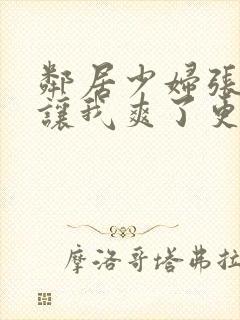 鄰居少婦張
讓我爽了
摩洛哥塔弗拉